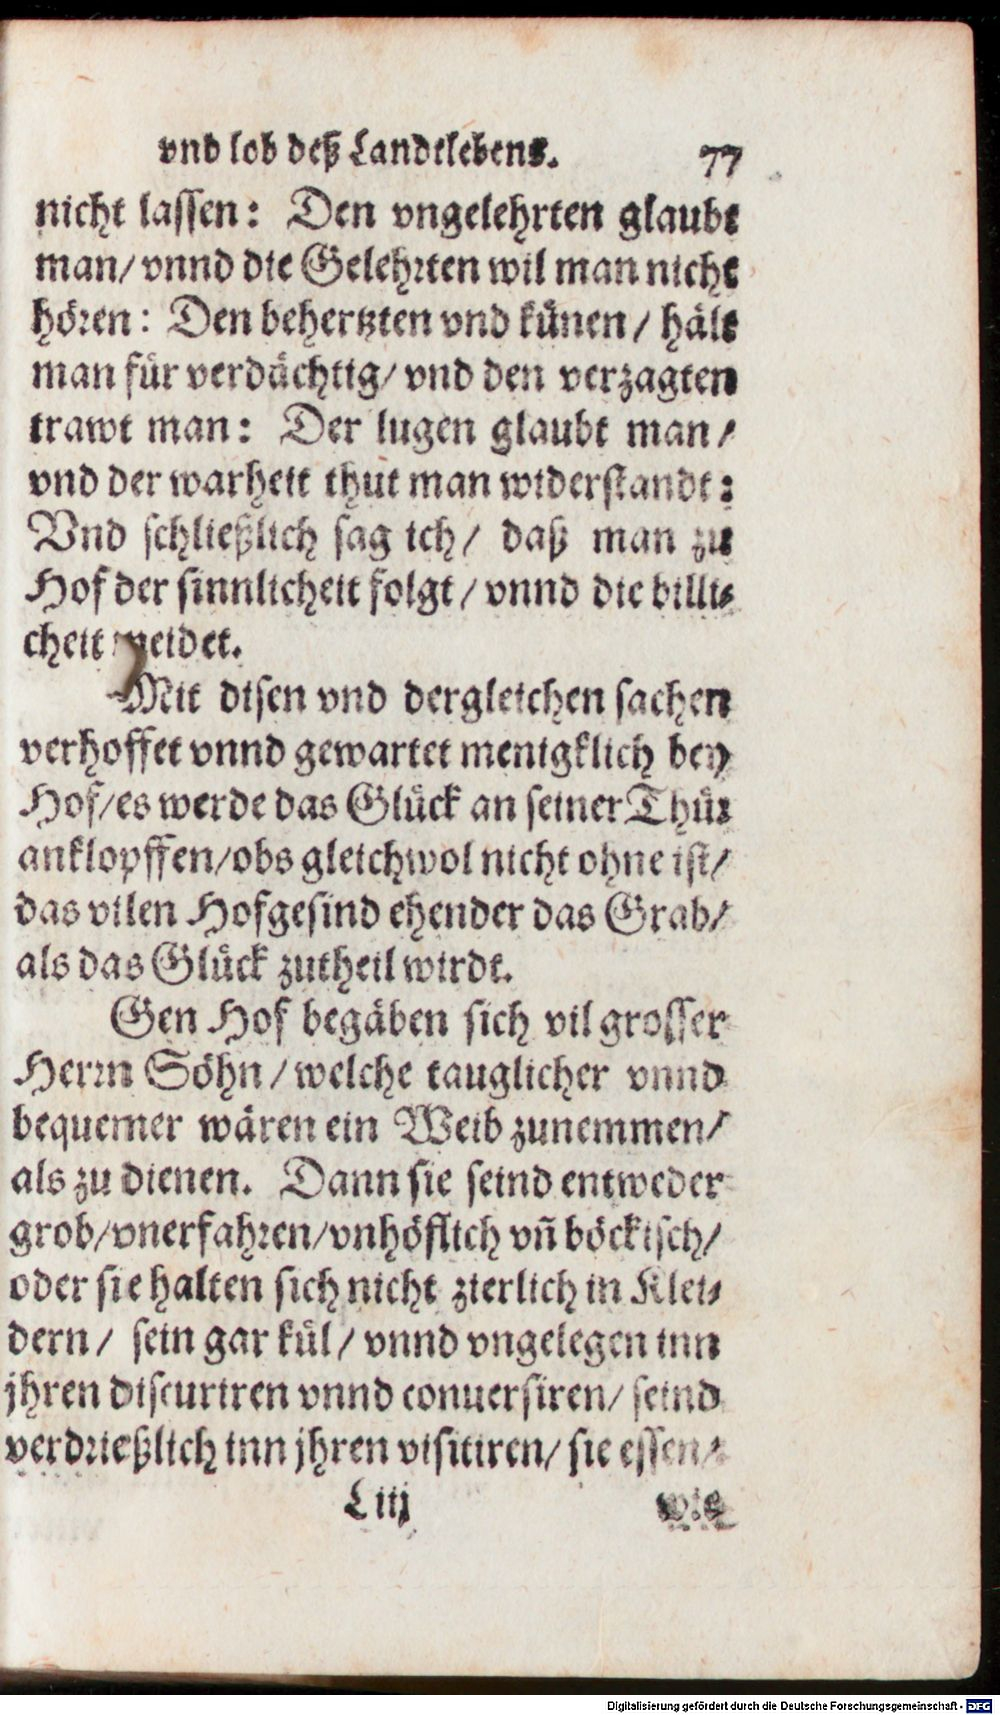 vnd lob deß Landtlebens. 77
nicht lassen: Den vngelehrten glaubt
man/ vnnd die Gelehrten wil man nicht
hören: Den behertzten vnd künen/ hält
man für verdächtig/ vnd den verzagten
trawt man: Der lugen glaubt man/
vnd der warheit thut man widerstandt:
Vnd schließlich sag ich/ daß man zu
Hof der sinnlicheit folgt/ vnnd die billi-
cheit meidet.
Mit disen vnd dergleichen sachen
verhoffet vnnd gewartet menigklich bey
Hof/ es werde das Glück an seiner Thür
anklopffen/ obs gleichwol nicht ohne ist/
das vilen Hofgesind ehender das Grab/
als das Glück zutheil wirdt.
Gen Hof begäben sich vil grosser
Herrn Söhn/ welche tauglicher vnnd
bequemer wären ein Weib zunemmen/
als zu dienen. Dann sie seind entweder
grob/ vnerfahren/ vnhöflich vñ böckisch/
oder sie halten sich nicht zierlich in Klei-
dern/ sein gar kül/ vnnd vngelegen inn
jhren discuriren vnnd conuersiren/ seind
verdrießlich inn jhren visitiren/ sie essen/
L iij wie
Digitalisierung gefördert durch die Deutsche Forschungsgemeinschaft - DFG